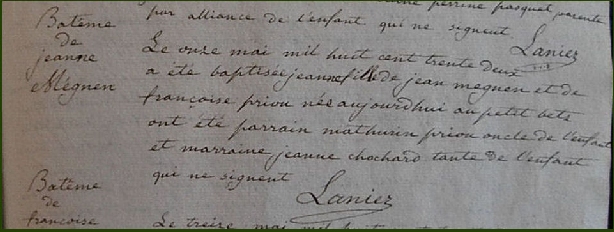 perrine pasquet parente
par alliance de l'enfant qui ne signent
Laniez
Batême
de
jeanne
Mégnen
Le onze mai mil huit cent trente deux
a été baptisée jeanne fille de jean megnen et de
françoise priou née aujourdhui au petit bets
ont été parrain mathurin priou oncle de l'enfant
et marraine jeanne chochard tante de l'enfant
qui ne signent
Laniez
Batême
de
françoise
Le treize mai mil huit cent